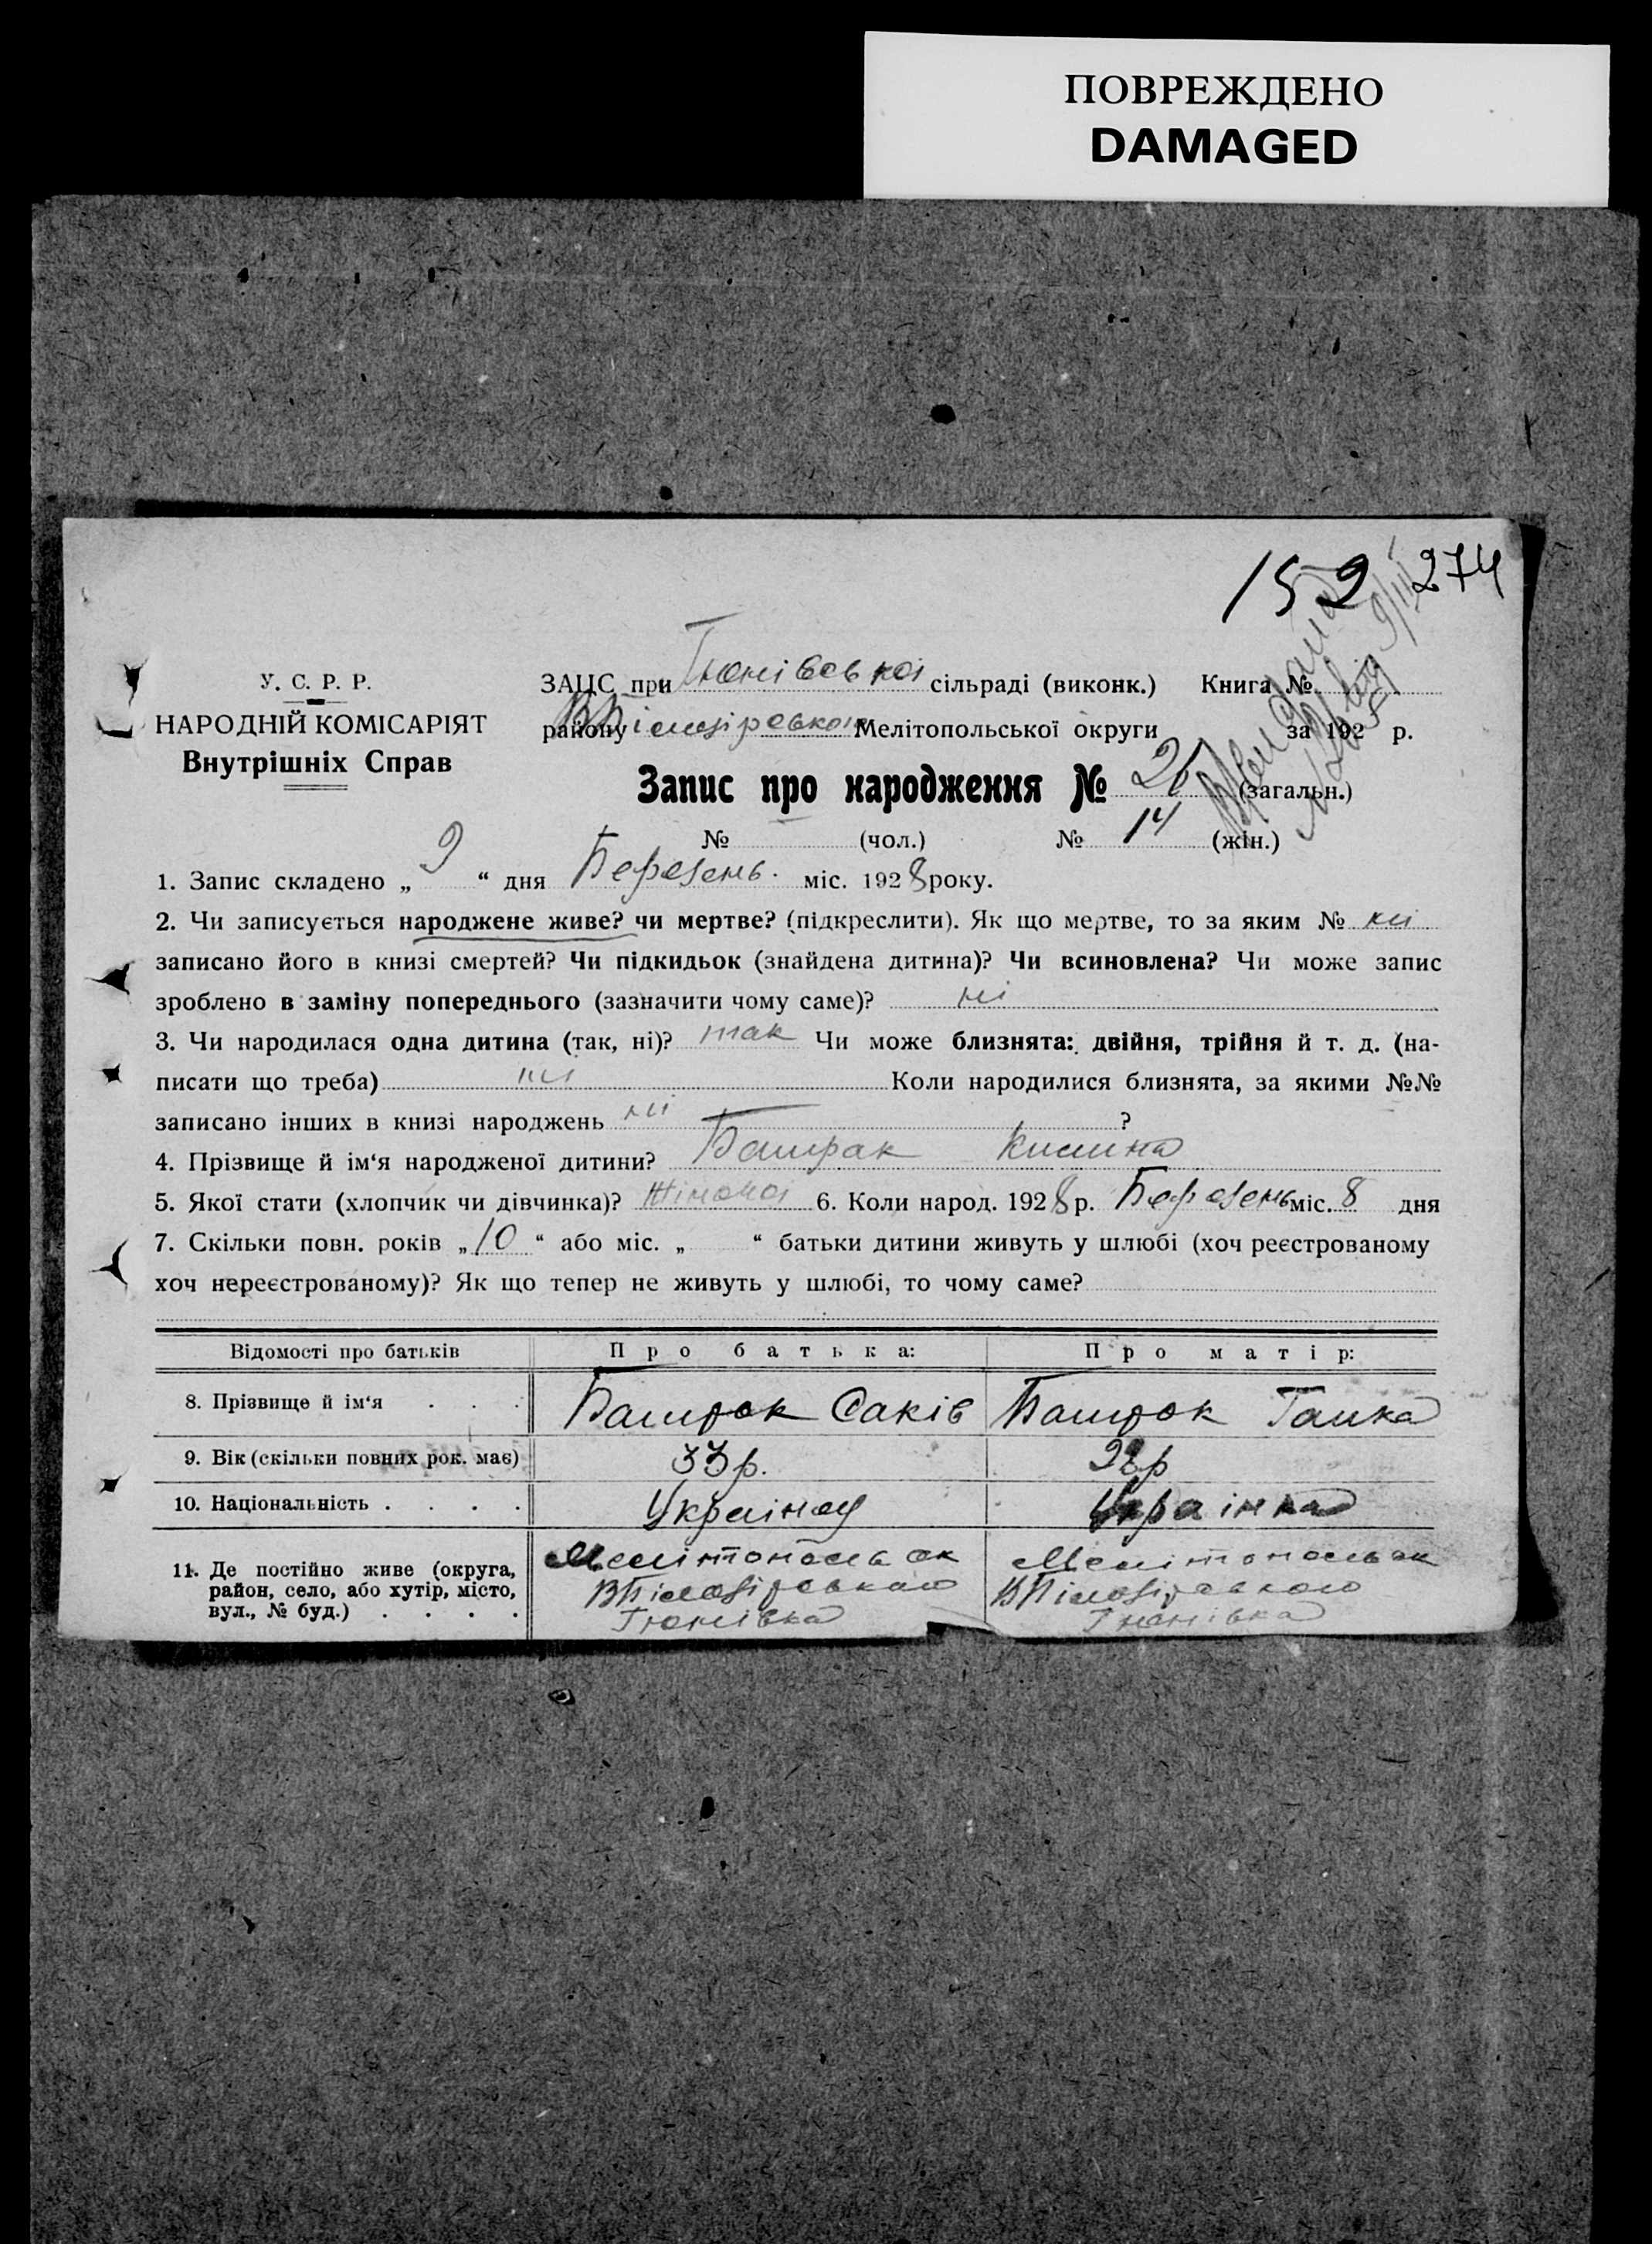 ПОВРЕЖДЕНО
DAMAGED
152 274
У. С. Р. Р.
НАРОДНІЙ КОМІСАРІЯТ
Внутрішніх Справ
ЗАЦС при Тюнівської сільраді (виконк.) Книга №
району Мелітопольської округи за 192 р.
Запис про народження № 26 (загальн.)
№ (чол.) № 14 (жін.)
1. Запис складено „ 9 “ дня Березень. міс. 1928 року.
2. Чи записується народжене живе? чи мертве? (підкреслити). Як що мертве, то за яким № ні
записано його в книзі смертей? Чи підкидьок (знайдена дитина)? Чи всиновлена? Чи може запис
зроблено в заміну попереднього (зазначити чому саме)? ні
3. Чи народилася одна дитина (так, ні)? так Чи може близнята: двійня, трійня й т. д. (на-
писати що треба) ні Коли народилися близнята, за якими №№
записано інших в книзі народжень ні ?
4. Прізвище й ім‘я народженої дитини? Башрак
5. Якої стати (хлопчик чи дівчинка)? жіночої 6. Коли народ. 1928 р. Березень міс. 8 дня
7. Скільки повн. років „10“ або міс. „ “ батьки дитини живуть у шлюбі (хоч реєстрованому
хоч нереєстрованому)? Як що тепер не живуть у шлюбі, то чому саме?
Відомості про батьків Про батька: Про матір:
8. Прізвище й ім‘я . . . Башрак Саків Башрак Ганка
9. Вік (скільки повних рок. має) 33р. 28р
10. Національність . . . . Українец Українка
11. Де постійно живе (округа,
район, село, або хутір, місто,
вул., № буд.) . . . .
Мелітопольск Мелітопольск
ВБілозірського ВБілозірського
Тюнівка Тюнівка